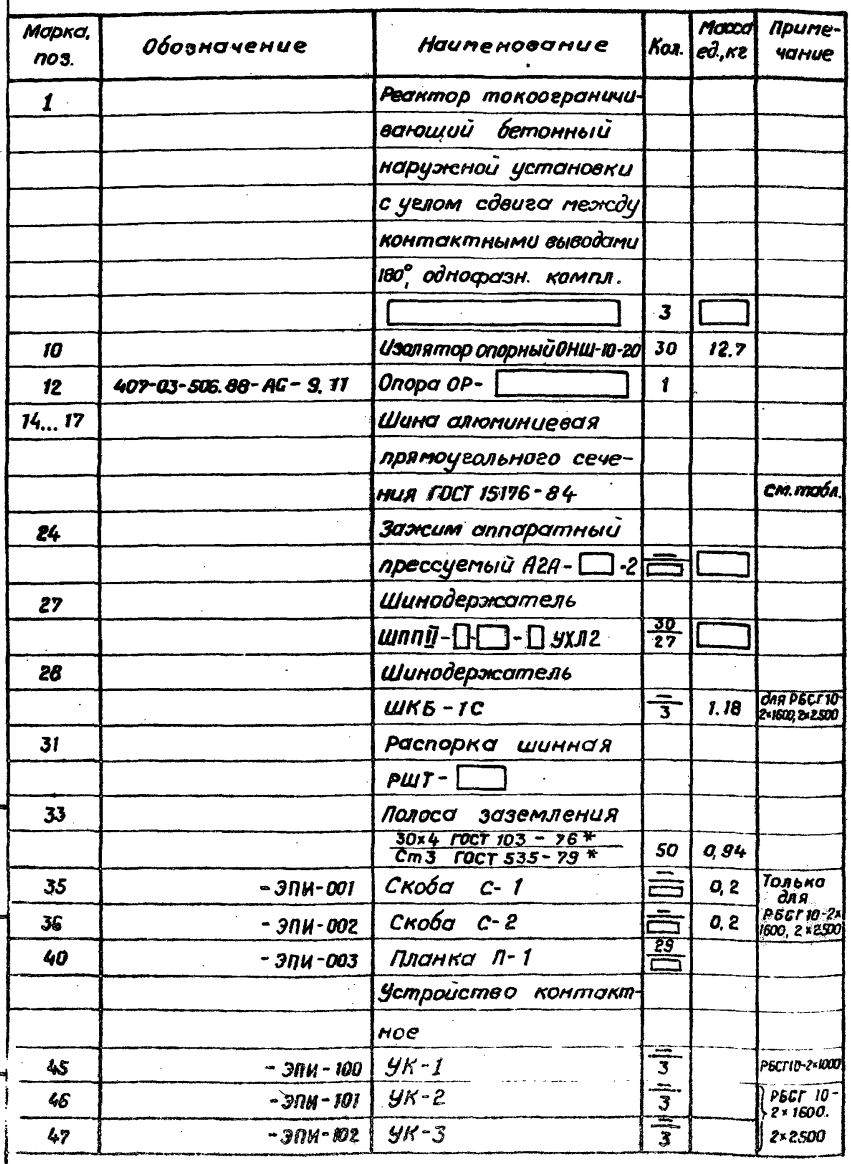 Марка, поз. Обозначение Наименование Кол. Масса ед., кг Приме-чание
1 Реактор токоограничи-
вающий бетонный
наружной установки
с углом сдвига между
контактными выводами
180°, однофазн. компл.
3
10 Изолятор опорный ОНШ-10-20 30 12.7
12 407-03-506.88-АС-9.11 Опора ОР- 1
14...17 Шина алюминиевая
прямоугольного сече-
ния ГОСТ 15176-84 см. табл.
24 Зажим аппаратный
прессуемый А2А- -2 —
27 Шинодержатель
ШППІІ- - - УХЛ2 30/27
28 Шинодержатель
ШКБ-1С —/3 1.18 для РБСГ 10-2×1600, 2×2500
31 Распорка шинная
РШТ-
33 Полоса заземления
30×4 ГОСТ 103-76*
Ст3 ГОСТ 535-79* 50 0,94
35 -ЭПИ-001 Скоба С-1 — 0,2 Только для
36 -ЭПИ-002 Скоба С-2 — 0.2 РБСГ 10-2× 1600, 2×2500
40 -ЭПИ-003 Планка П-1 29
Устройство контакт-
ное
45 -ЭПИ-100 УК-1 —/3 РБСГ10-2×1000
46 -ЭПИ-101 УК-2 —/3 РБСГ 10-2×1600.
47 -ЭПИ-102 УК-3 —/3 2×2500